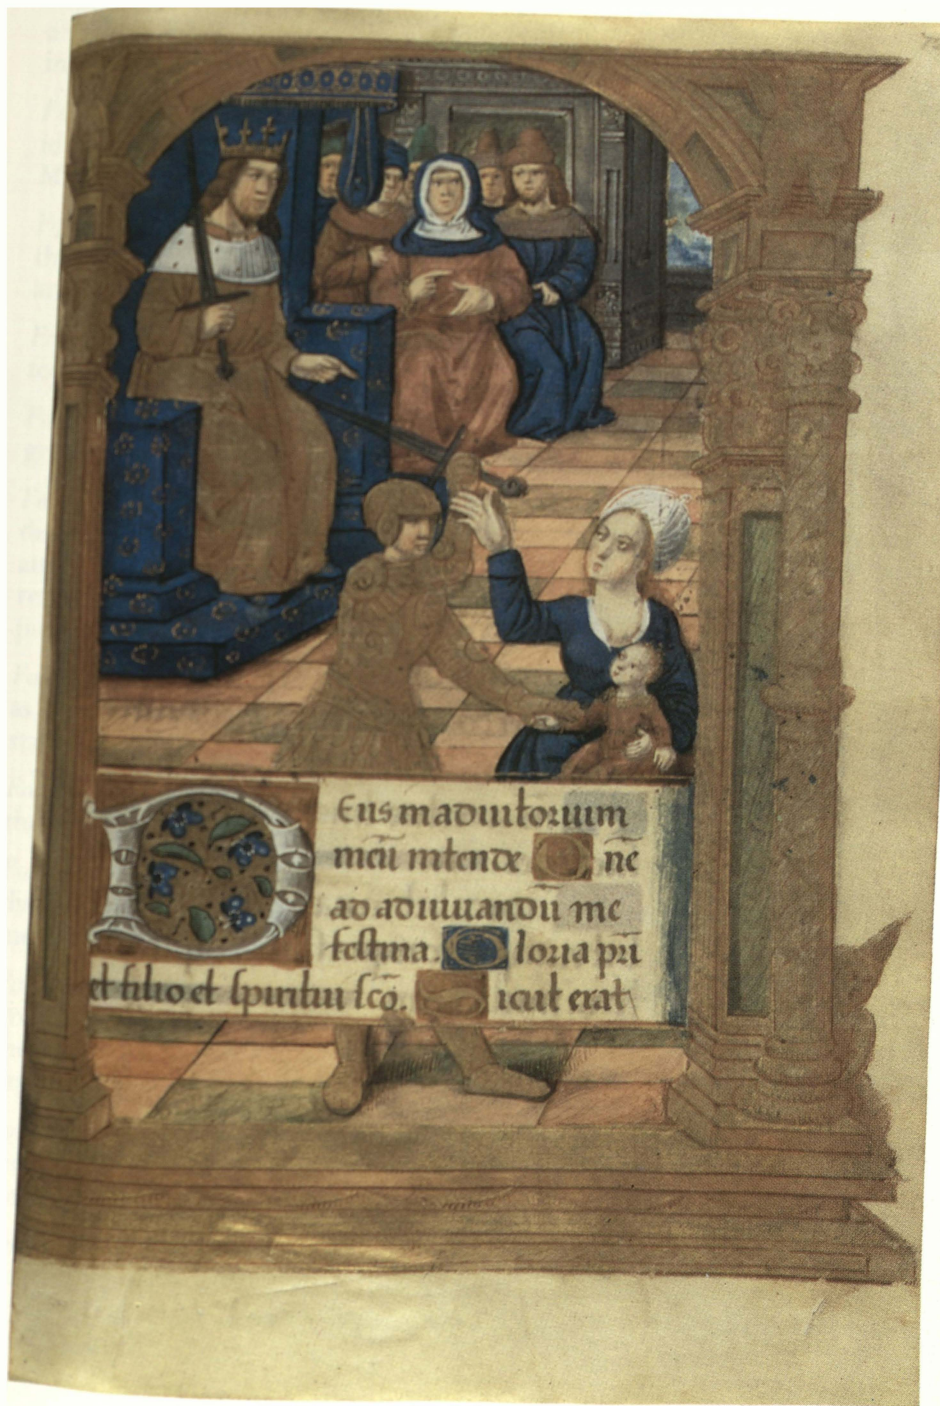 Deus in adiutorium
meū intende. Dñe
ad adiuuandū me
festina. Gloria pri
et filio et spiritui sco. Sicut erat